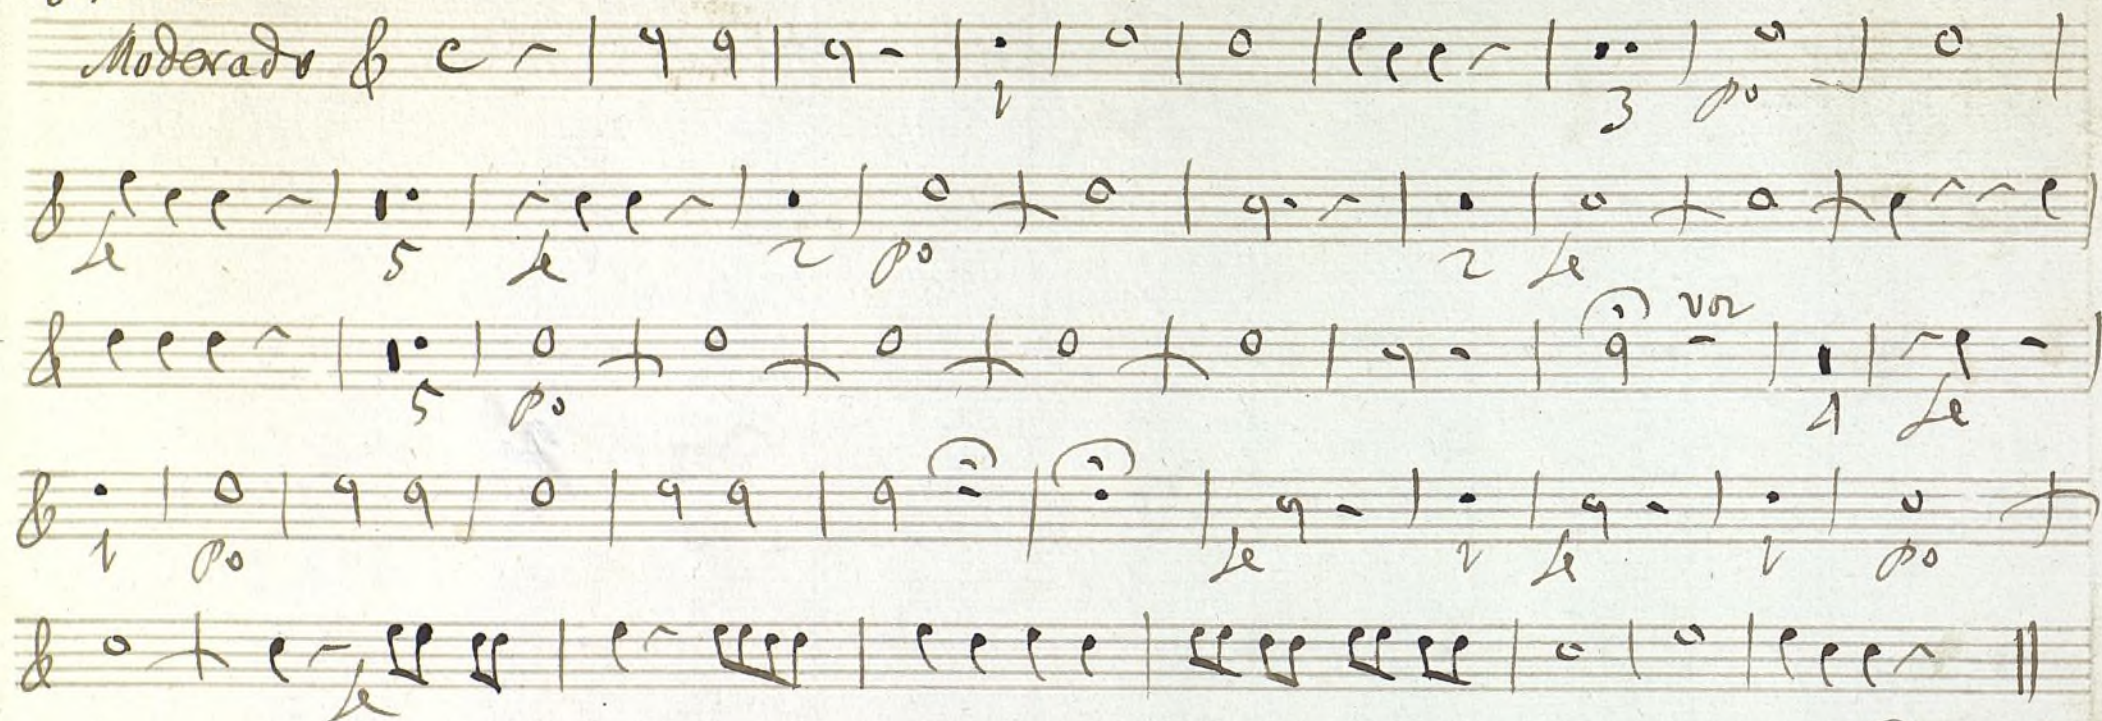 Moderado
1 3 po
fe 5 fe 2 po 2 fe
voz
5 po 1 fe
1 po fe 1 fe 1 po
fe